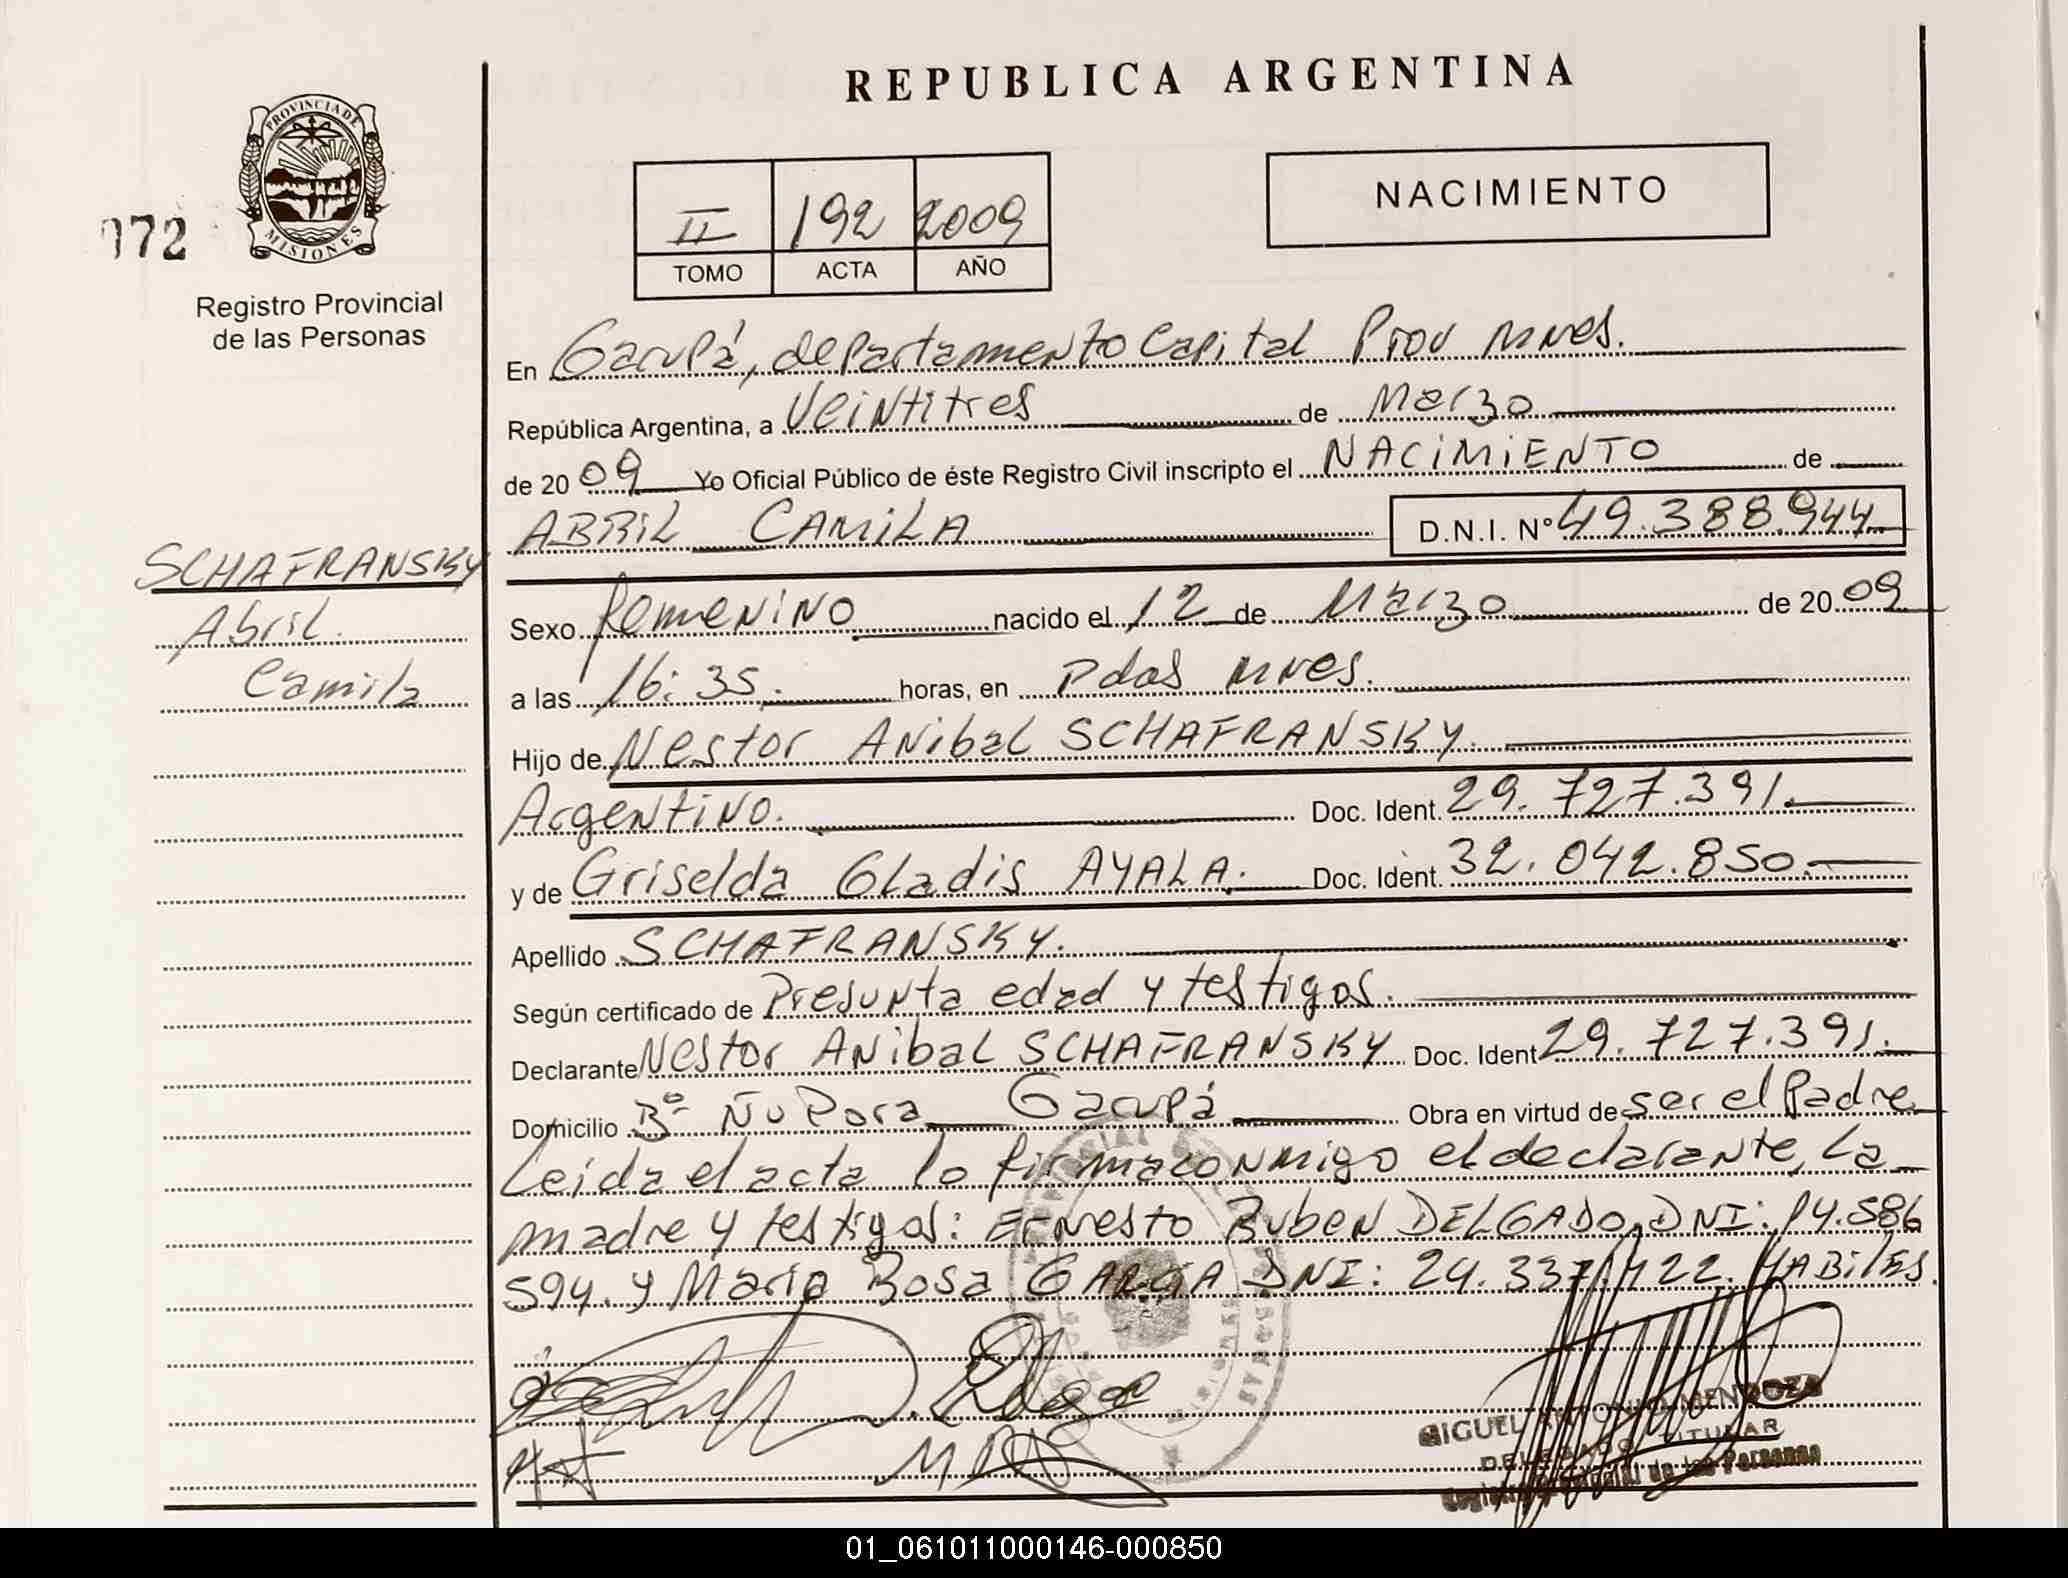 REPUBLICA ARGENTINA
PROVINCIA DE
MISIONES
072
Registro Provincial
de las Personas
II 192 2009
TOMO ACTA AÑO
NACIMIENTO
En Garupá, departamento Capital Prov Mnes.
República Argentina, a Veintitres de Marzo
de 2009 Yo Oficial Público de éste Registro Civil inscripto el NACIMIENTO de
ABRIL CAMILA D.N.I. Nº 49.388.944
SCHAFRANSKY
Abril
Camila
Sexo femenino nacido el 12 de Marzo de 2009
a las 16:35. horas, en Pdas Mnes.
Hijo de Nestor Anibal SCHAFRANSKY.
Argentino. Doc. Ident. 29.727.391.
y de Griselda Gladis AYALA. Doc. Ident. 32.042.850.
Apellido SCHAFRANSKY.
Según certificado de Presunta edad y testigos.
Declarante Nestor Anibal SCHAFRANSKY Doc. Ident 29.727.391.
Domicilio Bº Ñu Pora Garupá Obra en virtud de ser el Padre
Leida el acta lo firma conmigo el declarante, la
madre y testigos: Ernesto Ruben DELGADO, DNI: 14.586
594. y Maria Rosa GARCIA DNI: 24.337.122. HABILES.
MIGUEL ANTONIO MENDOZA
DELEGADO TITULAR
Registro Provincial de las Personas
01_061011000146-000850